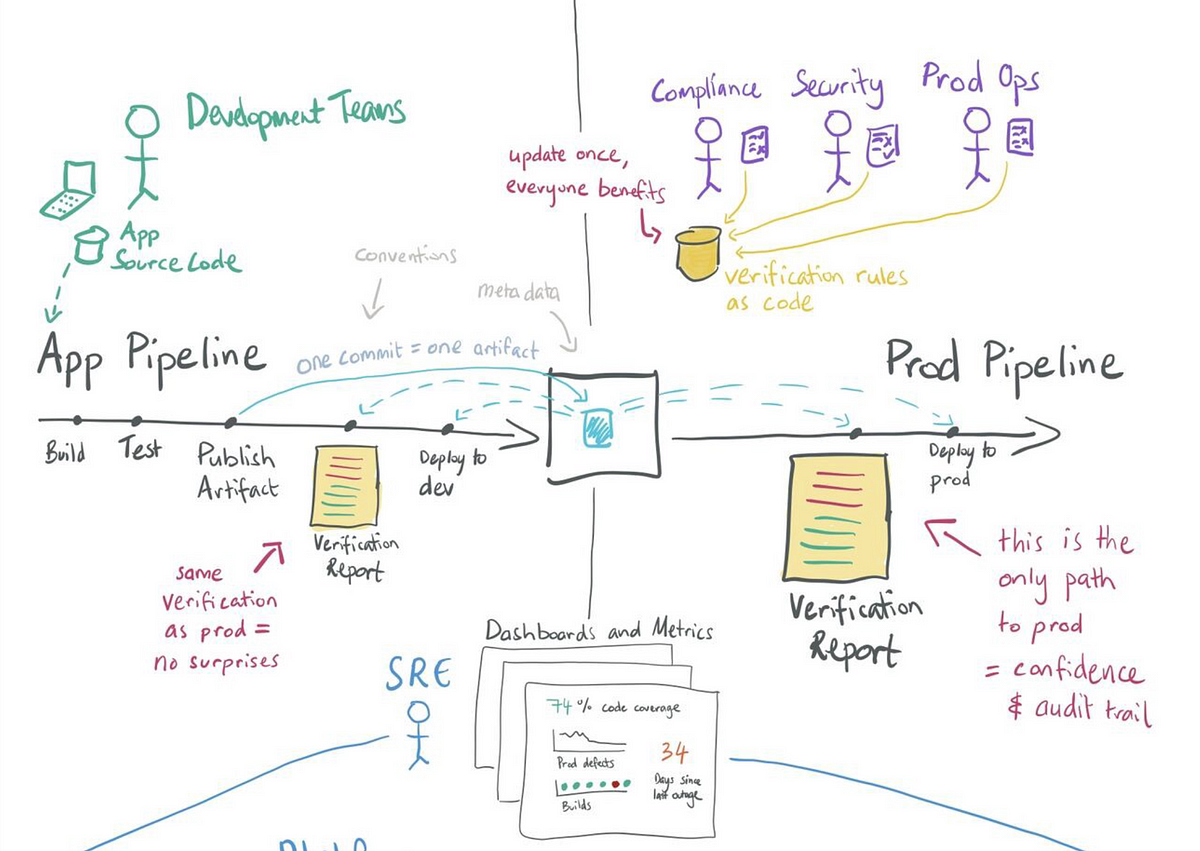 Development Teams
App
Source Code
Compliance
Security
Prod Ops
update once,
everyone benefits
verification rules
as code
conventions
metadata
one commit = one artifact
App Pipeline
Prod Pipeline
Build
Test
Publish
Artifact
Deploy to
dev
Deploy to
prod
Verification
Report
same
verification
as prod =
no surprises
Verification
Report
this is the
only path
to prod
= confidence
& audit trail
SRE
Dashboards and Metrics
74% code coverage
Prod defects
Builds
34
Days since
last outage